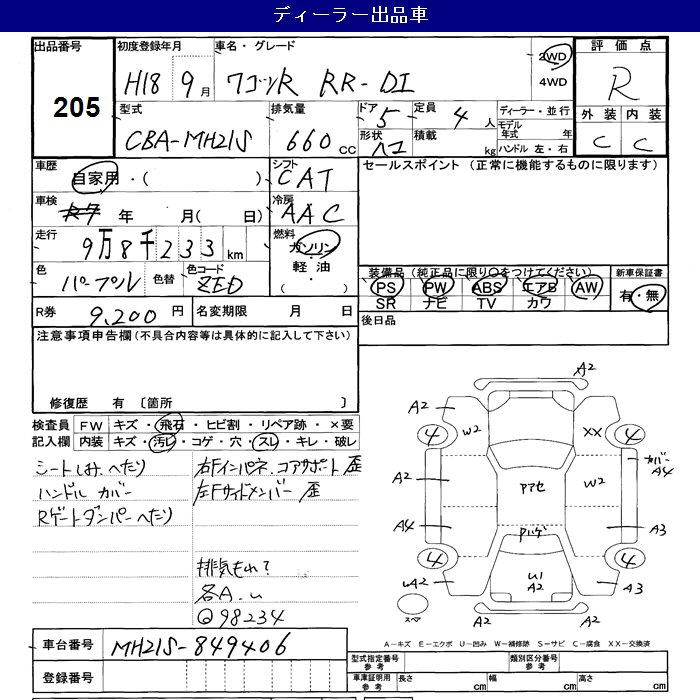 ディーラー出品車
出品番号 初度登録年月 車名・グレード 2WD 評価点
205 H18 9月 ワゴンR RR-DI 4WD R
型式 排気量 ドア 5 定員 4人 ディーラー・並行 外装 内装
CBA-MH21S 660cc 形状 ハコ 積載 kg モデル年式 年 ハンドル 左・右 C C
車歴 自家用・( ) シフト CAT セールスポイント (正常に機能するものに限ります)
車検 R7年 月( 日) 冷房 AAC
走行 9万8千233km 燃料 ガソリン・軽油・( )
色 パープル 色替 色コード ZED 装備品(純正品に限り〇をつけてください) 新車保証書
PS PW ABS エアB AW 有・無
SR ナビ TV カワ
R券 9,200円 名変期限 月 日 後日品
注意事項申告欄(不具合内容等は具体的に記入して下さい)
修復歴 有 〔箇所 〕
検査員 FW キズ・飛石・ヒビ割・リペア跡・×要
記入欄 内装 キズ・汚レ・コゲ・穴・スレ・キレ・破レ
シートしみ、へたり 右Fインパネ、コアサポート 歪
ハンドル カバー 左Fサイドメンバー 歪
Rゲートダンパーへたり
排気もれ?
各A.u
98234
A2
A2 W2 XX
4 4 カバー A4
A2 アマセ W2
A4 アハゲ A3
4 4
UA2 U1 A2 A3
スペア A2 A2
A-キズ E-エクボ U-凹み W-補修跡 S-サビ C-腐食 XX-交換済
車台番号 MH21S-849406
登録番号
型式指定番号 参考 類別区分番号 参考
車庫証明用 参考 長さ cm 幅 cm 高さ cm